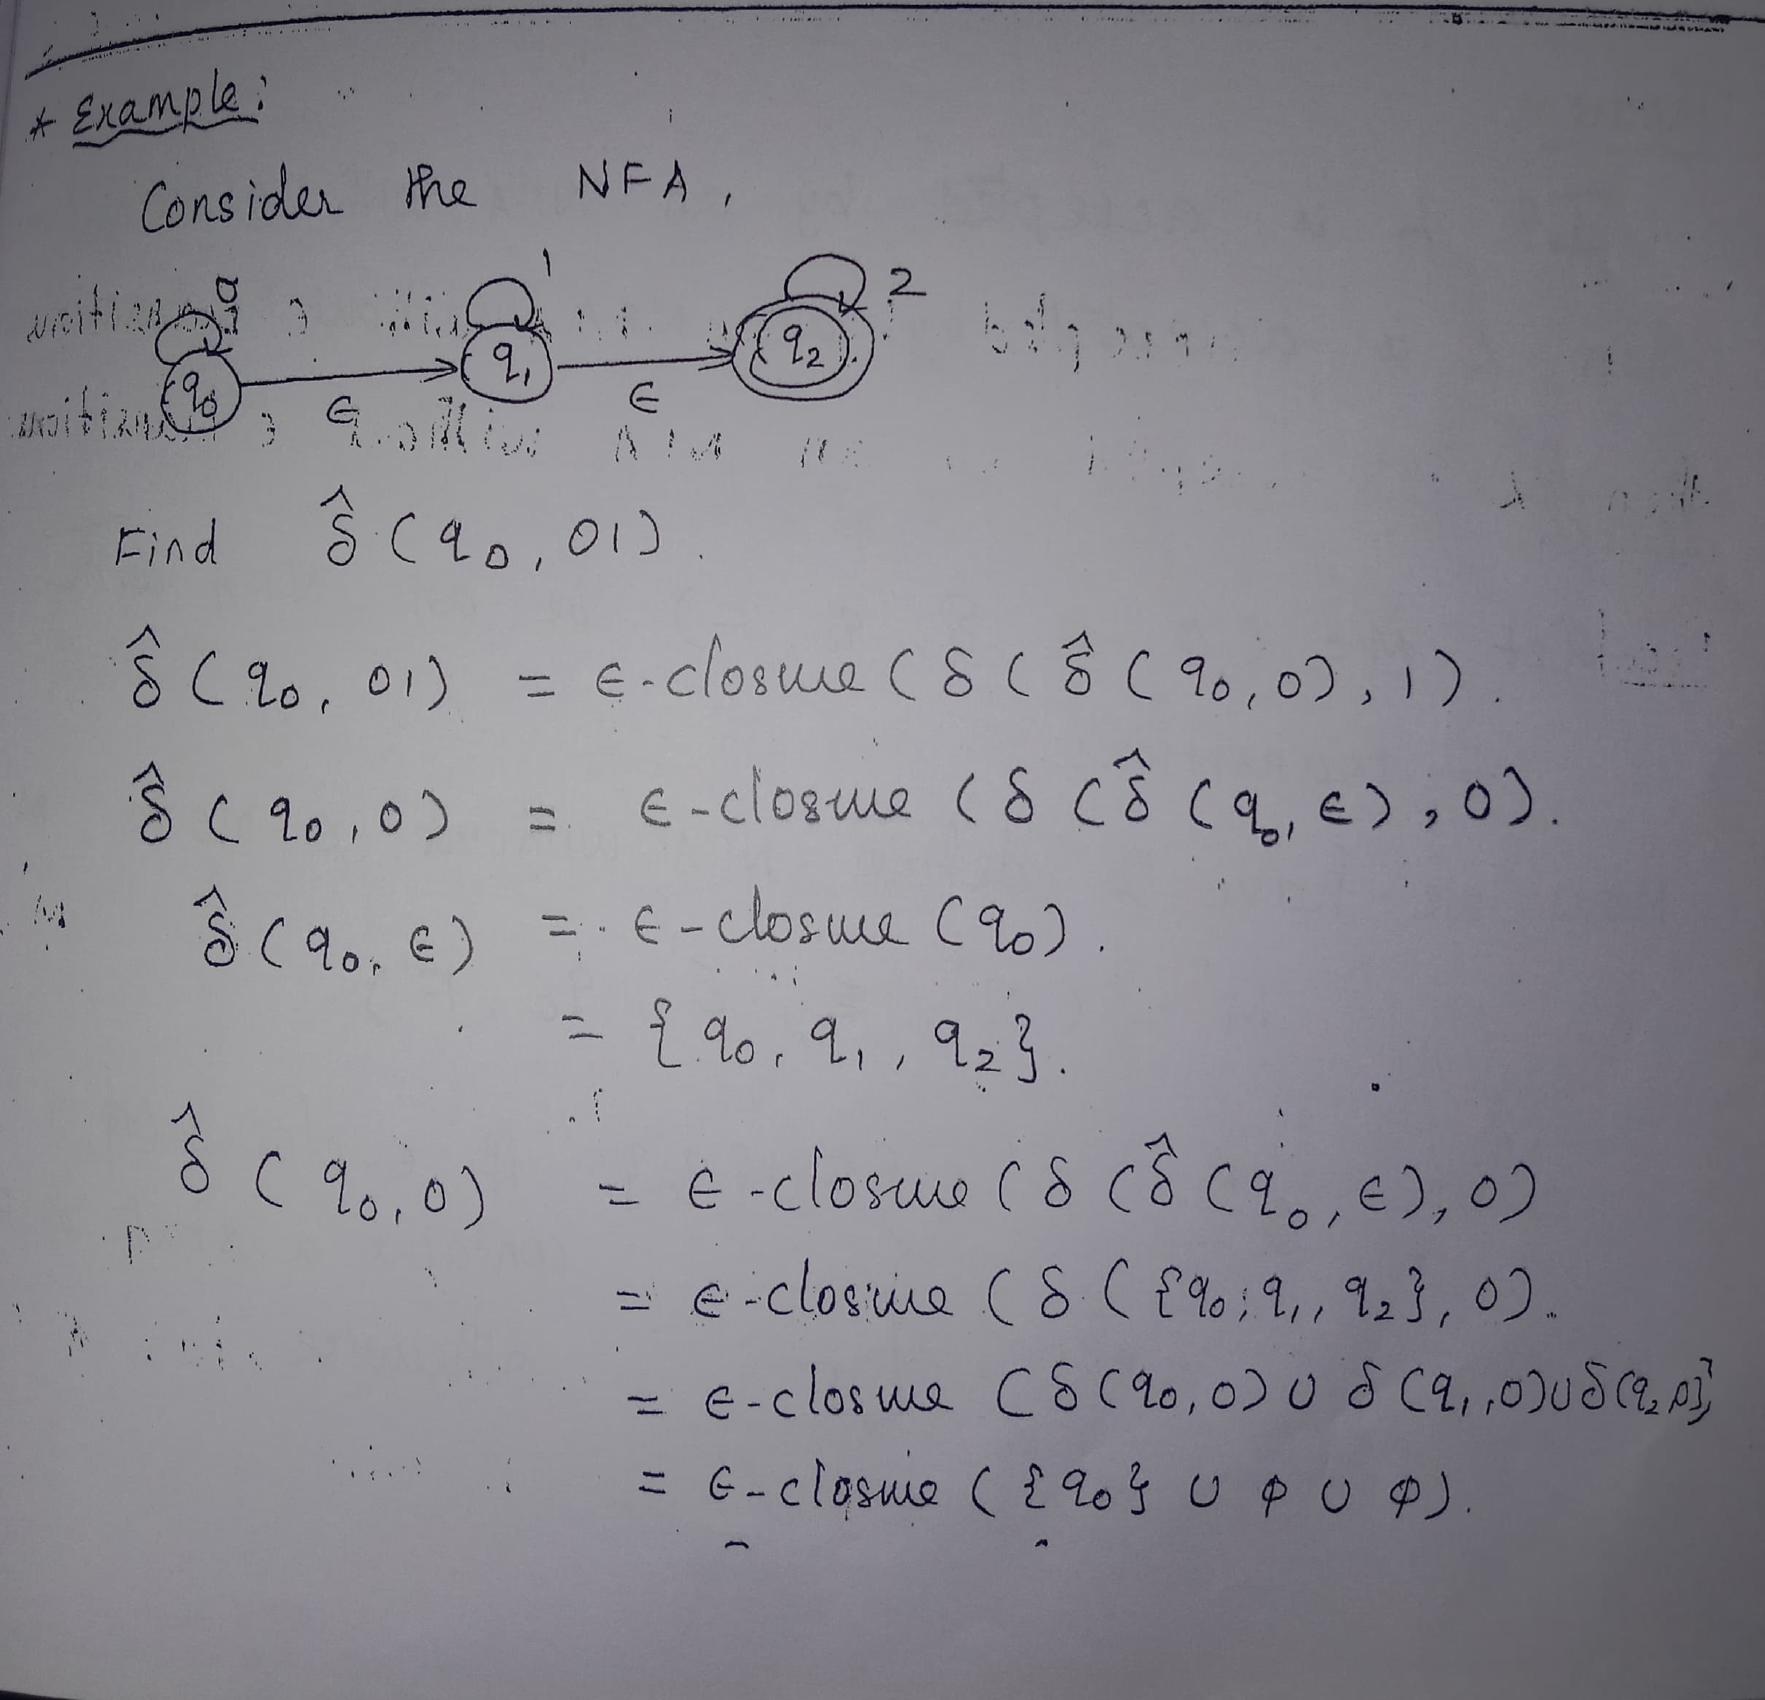 * Example:
Consider the NFA,
0 1 2
q₀ q₁ q₂
ϵ ϵ
Find δ̂ (q₀, 01).
δ̂ (q₀, 01) = ϵ-closure (δ ( δ̂ (q₀, 0), 1).
δ̂ (q₀, 0) = ϵ-closure (δ (δ̂ (q₀, ϵ), 0).
δ̂ (q₀, ϵ) = ϵ-closure (q₀).
= {q₀, q₁, q₂}.
δ̂ (q₀, 0) = ϵ-closure (δ (δ̂ (q₀, ϵ), 0)
= ϵ-closure (δ ({q₀, q₁, q₂}, 0).
= ϵ-closure (δ (q₀, 0) ∪ δ (q₁, 0) ∪ δ (q₂, 0)}
= ϵ-closure ({q₀} ∪ ϕ ∪ ϕ).